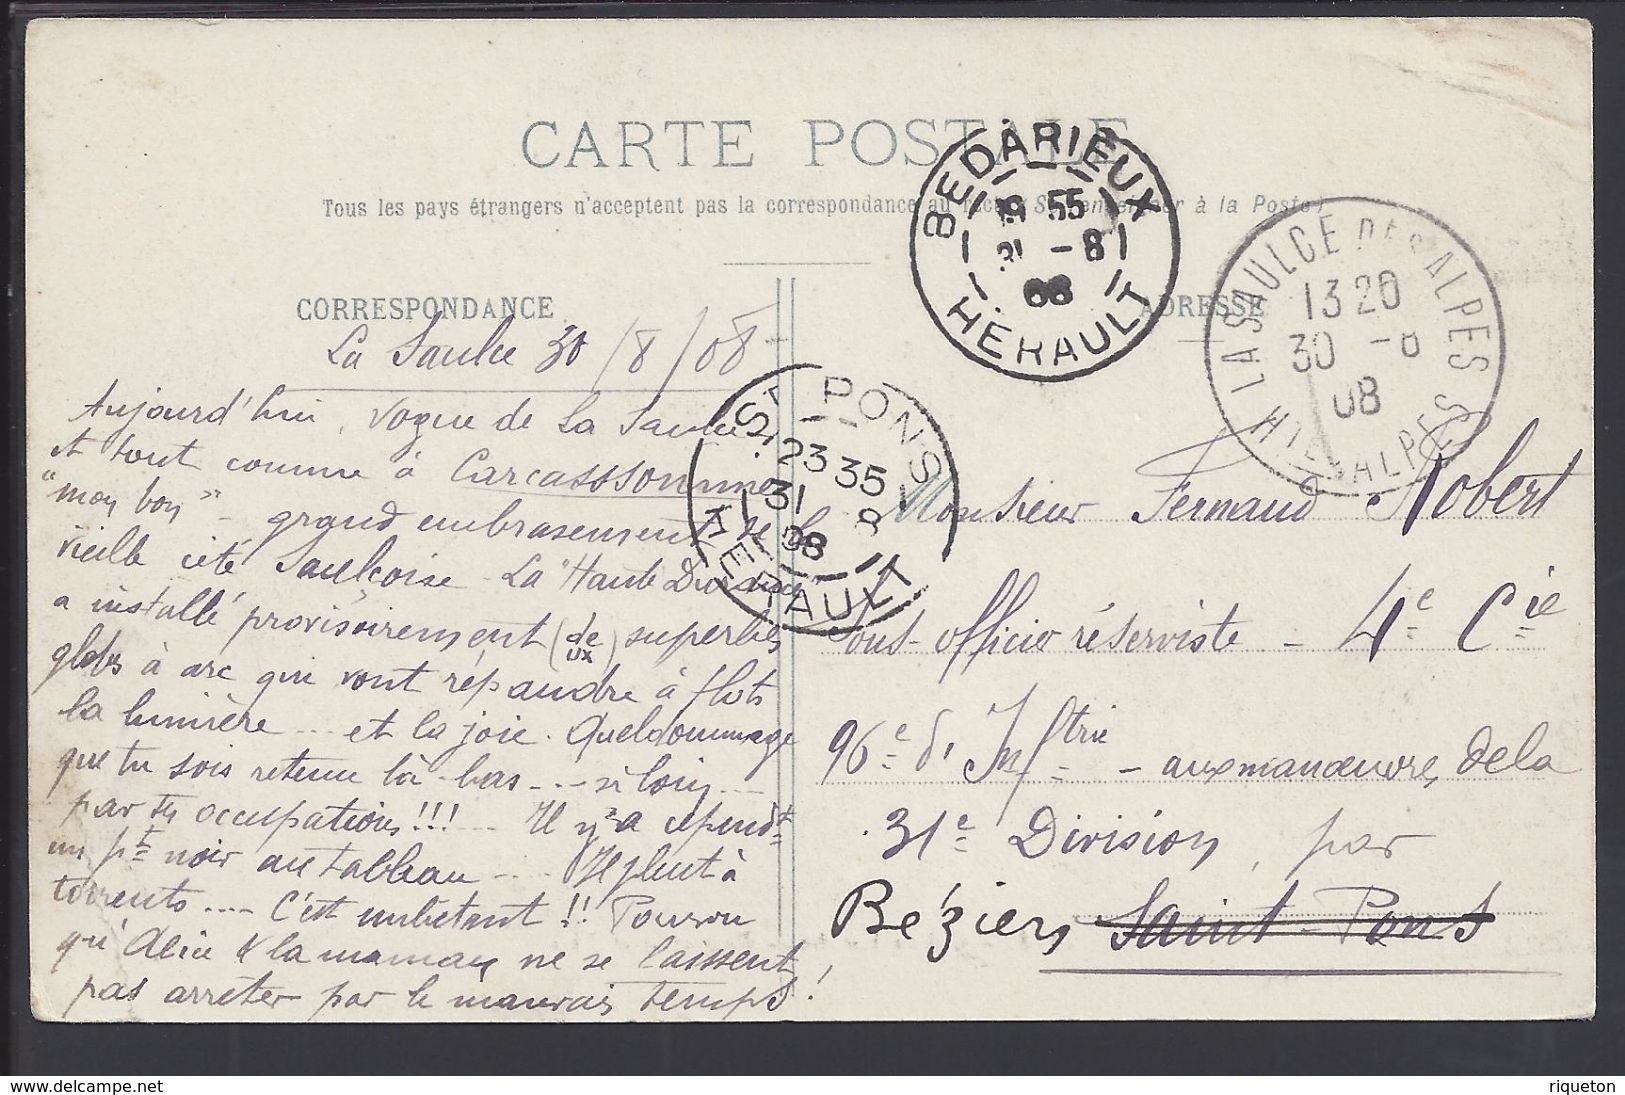 CARTE POSTALE
Tous les pays étrangers n'acceptent pas la correspondance au recto (Se renseigner à la Poste)
CORRESPONDANCE
La Saulce 30/8/08
Aujourd'hui, vogue de La Saulce
et tout comme à Carcasssonnne
"mon bon" - grand embrasement de la
vieille cité Saulçoise - La "Haute Durance"
a installé provisoirement (deux) superbes
globes à arc qui vont répandre à flots
la lumière ... et la joie. Quel dommage
que tu sois retenu là-bas ... si loin ...
par tes occupations!!! ... Il y'a cepend.t
un p.t noir au tableau .... Il pleut à
torrents .... C'est embêtant!! Pourvu
qu'Alice & la maman ne se laissent
pas arrêter par le mauvais temps!
ADRESSE
Monsieur Fernand Robert
Sous-officier réserviste - 4e Cie
96e d'Inftrie - aux manœuvres de la
31e Division, par
Béziers Saint-Pons
BEDARIEUX
19 55
31 -8
08
HÉRAULT
LA SAULCE DES ALPES
13 20
30 -8
08
HTES ALPES
ST PONS
23 35
31 8
08
HERAULT
riqueton